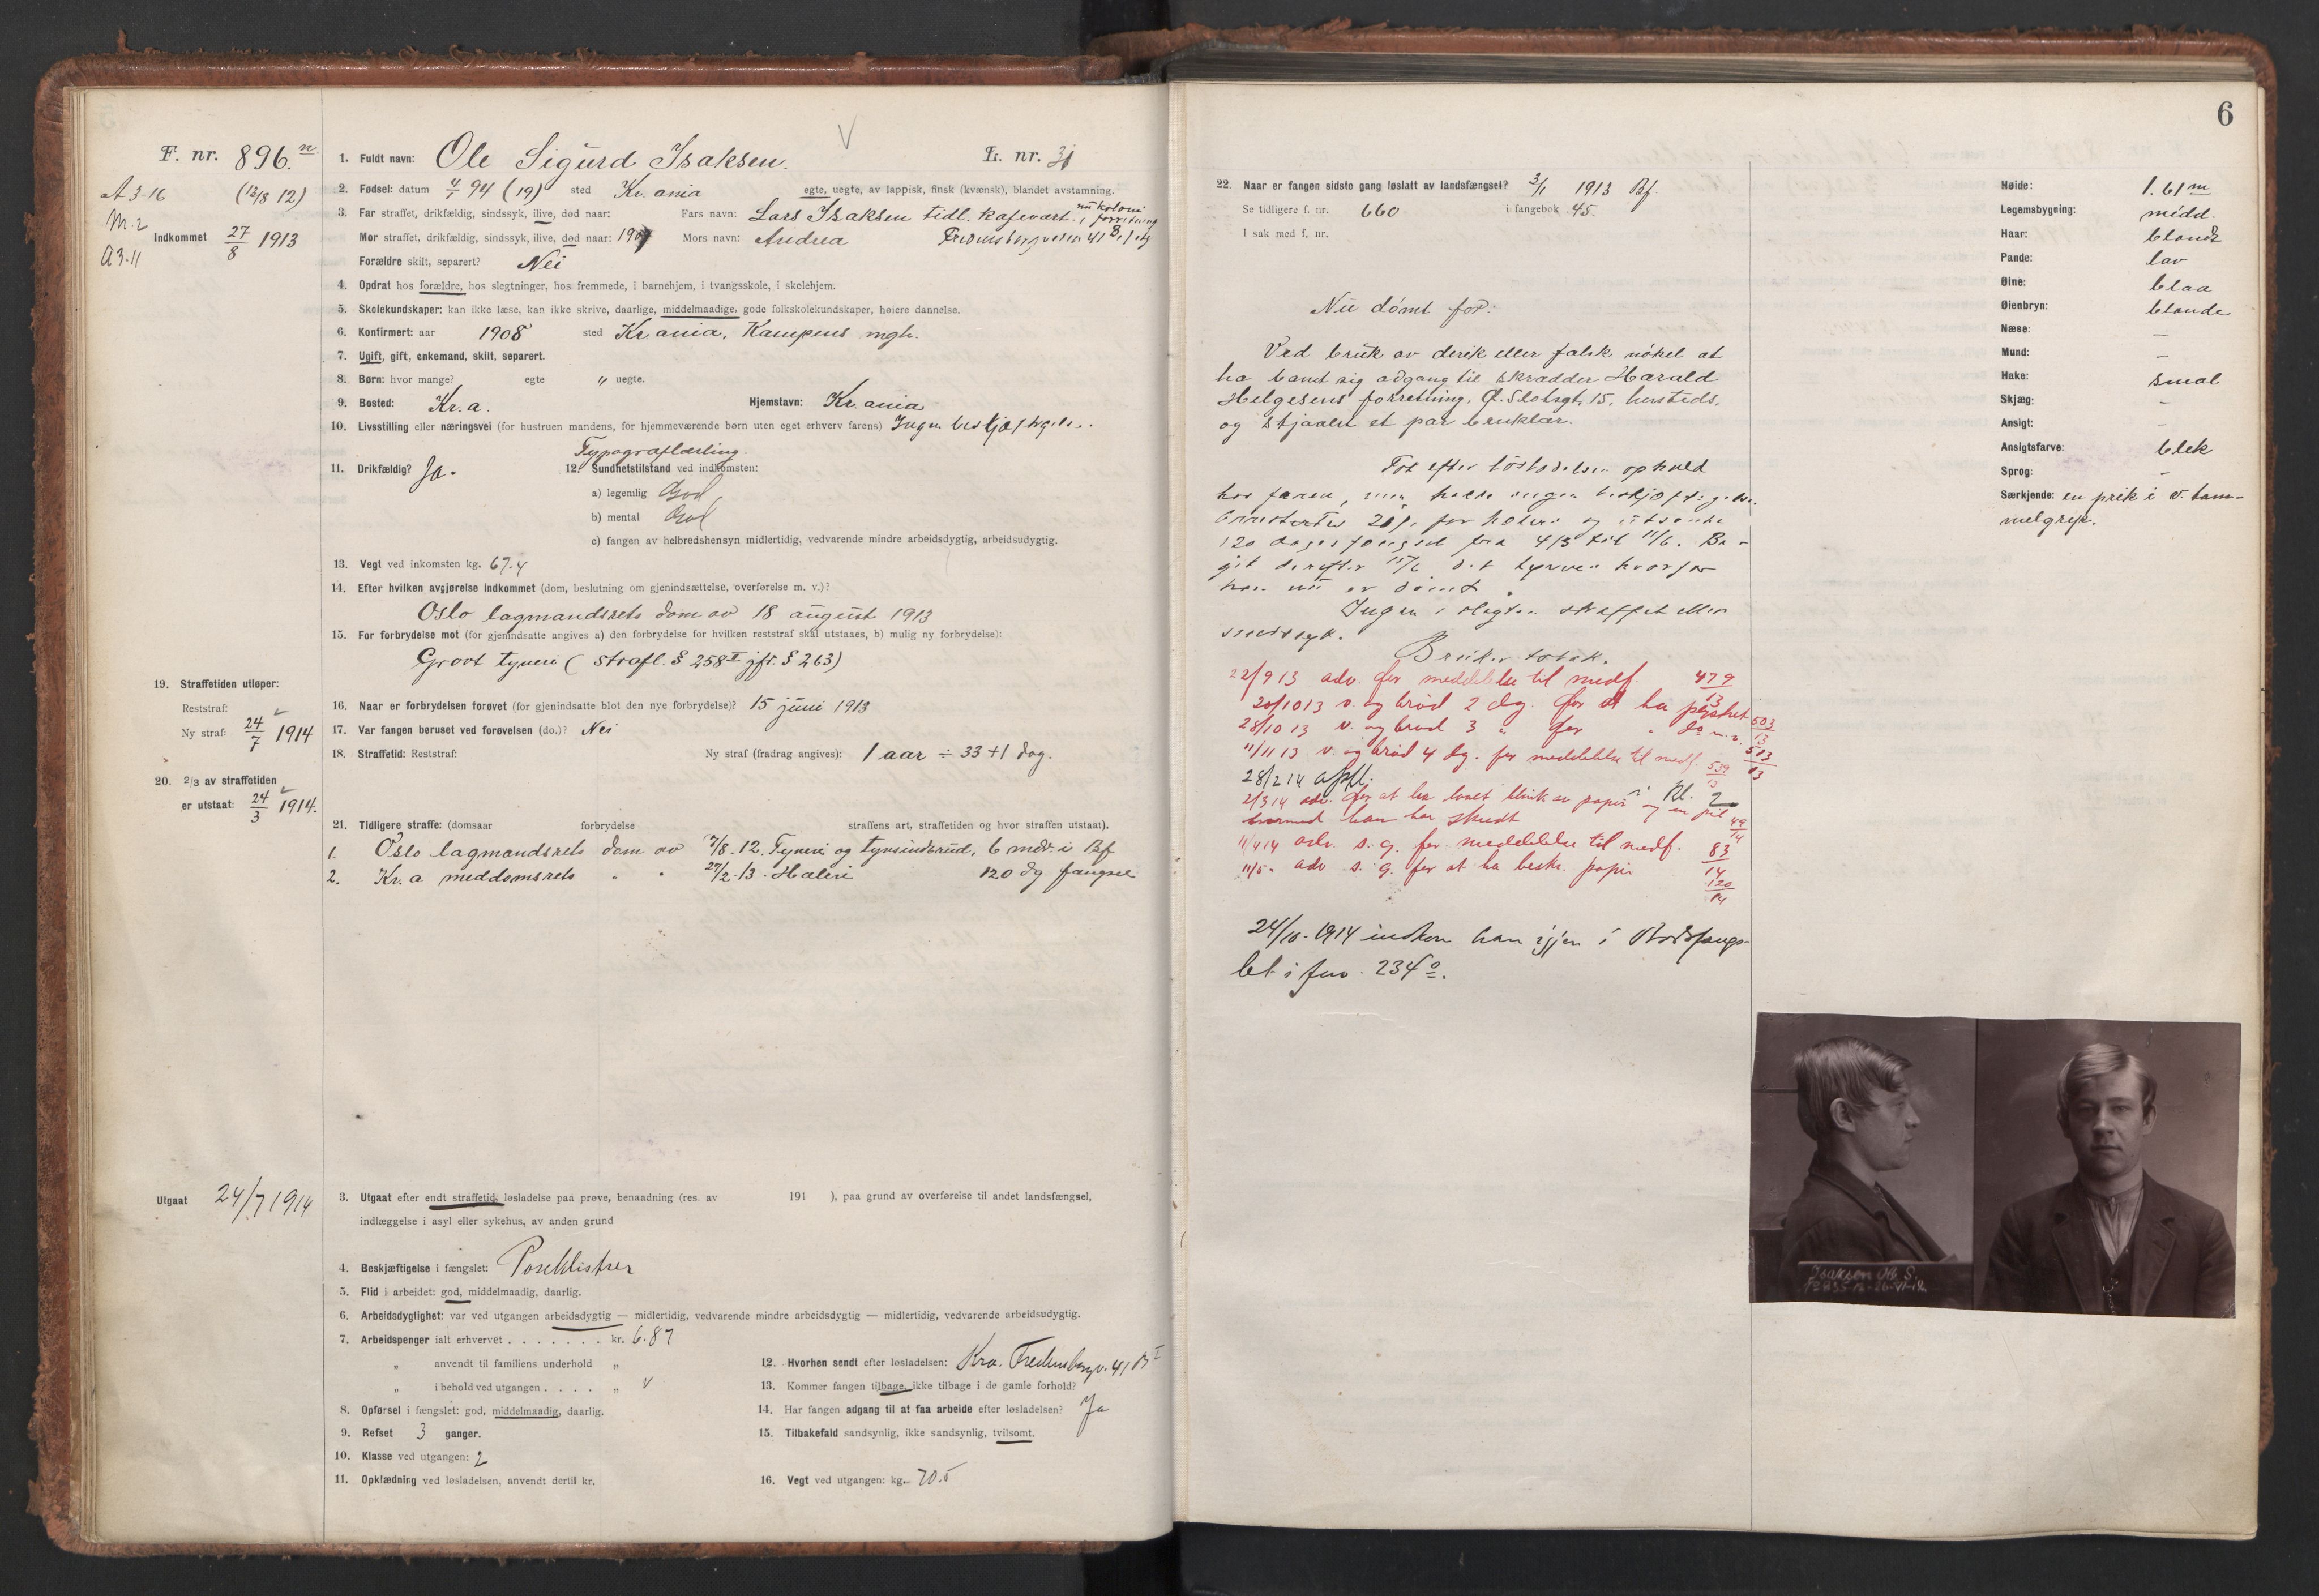 F. nr. 896.
A 3-16
(13/8 12)
M. 2
A 3-11
Indkommet 27/8 1913
1. Fuldt navn: Ole Sigurd Isaksen.
L. nr. 31
2. Fødsel: datum 4/7 94 (19) sted Kr.ania egte, uegte, av lappisk, finsk (kvænsk), blandet avstamning.
3. Far straffet, drikfældig, sindssyk, ilive, død naar: Fars navn: Lars Isaksen tidl. kafevært. nu koloni
Mor straffet, drikfældig, sindssyk, ilive, død naar: 1907 Mors navn: Andrea
Forældre skilt, separert? Nei
4. Opdrat hos forældre, hos slegtninger, hos fremmede, i barnehjem, i tvangsskole, i skolehjem.
5. Skolekundskaper: kan ikke læse, kan ikke skrive, daarlige, middelmaadige, gode folkskolekundskaper, høiere dannelse.
6. Konfirmert: aar 1908 sted Kr.ania, Kampens mgh.
7. Ugift, gift, enkemand, skilt, separert.
8. Børn: hvor mange? egte " uegte.
9. Bosted: Kr.a. Hjemstavn: Kr.ania
10. Livsstilling eller næringsvei (for hustruen mandens, for hjemmeværende børn uten eget erhverv farens) Ingen beskjæftigelse.
Typograflærling.
11. Drikfældig? Ja. 12. Sundhetstilstand ved indkomsten:
a) legemlig God,
b) mental God
c) fangen av helbredshensyn midlertidig, vedvarende mindre arbeidsdygtig, arbeidsudygtig.
13. Vegt ved inkomsten kg. 67.4
14. Efter hvilken avgjørelse indkommet (dom, beslutning om gjenindsættelse, overførelse m. v.)?
Oslo lagmandsrets dom av 18 august 1913
15. For forbrydelse mot (for gjenindsatte angives a) den forbrydelse for hvilken reststraf skal utstaaes, b) mulig ny forbrydelse):
Grovt tyveri ( strafl. § 258 I jfr. § 263)
19. Straffetiden utløper:
Reststraf:
Ny straf: 24/7 1914
16. Naar er forbrydelsen forøvet (for gjenindsatte blot den nye forbrydelse)? 15 juni 1913
17. Var fangen beruset ved forøvelsen (do.)? Nei
18. Straffetid: Reststraf: Ny straf (fradrag angives): 1 aar ÷ 33 + 1 dag.
20. 2/3 av straffetiden
er utstaat: 24/3 1914.
21. Tidligere straffe: (domsaar forbrydelse straffens art, straffetiden og hvor straffen utstaat).
1. Oslo lagmandsrets dom av 7/8-12. Tyveri og tyvsindbrud, 6 mdr. i Bf
2. Kr.a meddomsrets " " 27/2-13. Heleri 120 dg. fængsel
Utgaat 24/7 1914
3. Utgaat efter endt straffetid, løsladelse paa prøve, benaadning (res. av 191 ), paa grund av overførelse til andet landsfængsel,
indlæggelse i asyl eller sykehus, av anden grund
4. Beskjæftigelse i fængslet: Poseklistrer
5. Flid i arbeidet: god, middelmaadig, daarlig.
6. Arbeidsdygtighet: var ved utgangen arbeidsdygtig — midlertidig, vedvarende mindre arbeidsdygtig — midlertidig, vedvarende arbeidsudygtig.
7. Arbeidspenger ialt erhvervet . . . . . . . kr. 6.87
" anvendt til familiens underhold "
" i behold ved utgangen . . . . "
8. Opførsel i fængslet: god, middelmaadig, daarlig.
9. Refset 3 ganger.
10. Klasse ved utgangen: 2
11. Opklædning ved løsladelsen, anvendt dertil kr.
12. Hvorhen sendt efter løsladelsen: Kra. Fredensborgv. 41 B I
13. Kommer fangen tilbage, ikke tilbage i de gamle forhold?
14. Har fangen adgang til at faa arbeide efter løsladelsen? Ja
15. Tilbakefald sandsynlig, ikke sandsynlig, tvilsomt.
16. Vegt ved utgangen: kg. 70.5
6
22. Naar er fangen sidste gang løslatt av landsfængsel? 3/1 1913 Bf.
Se tidligere f. nr. 660 i fangebok 45.
I sak med f. nr.
Nu dømt for:
Ved bruk av dirik eller falsk nøkel at
ha banet sig adgang til skrædder Harald
Helgesens forretning, Ø. Slotsgt. 15, hersteds,
og stjaalet et par benklær.
Tok efter løsladelsen ophold
hos faren, men hadde ingen beskjæftigelse.
for heleri og utsonte
120 dages fængsel fra 4/3 til 11/6. Be-
git derefter 15/6 det tyveri hvorfor
han nu er dømt.
Ingen i slegten straffet eller
sindssyk.
Bruker tobak.
22/9 13 adv. for meddelelse til medf. 479/13
20/10 13 v. og brød 2 dg. for at ha plystret 503/13
28/10 13 v. og brød 3 " for " do m.v. 513/13
11/11 13 v. og brød 4 dg. for meddelelse til medf. 539/13
28/2 14 opfl. i Kl. 2
2/3 14 adv. for at ha lavet blink av papir og en pil 49/14
hvormed han har skudt
11/4 14 adv. s. g. for meddelelse til medf. 83/14
11/5 - adv s. g. for at ha beskr. papir 120/14
24/10-1914 indkom han igjen i Bodsfængs-
let i fnr. 234 o.
Høide: 1.61 m
Legemsbygning: midd.
Haar: blondt
Pande: lav
Øine: blaa
Øienbryn: blonde
Næse: —
Mund: —
Hake: smal
Skjæg: —
Ansigt: —
Ansigtsfarve: blek
Sprog: —
Særkjende: en prik i v. tom-
melgrep.
Isaksen Ole S.